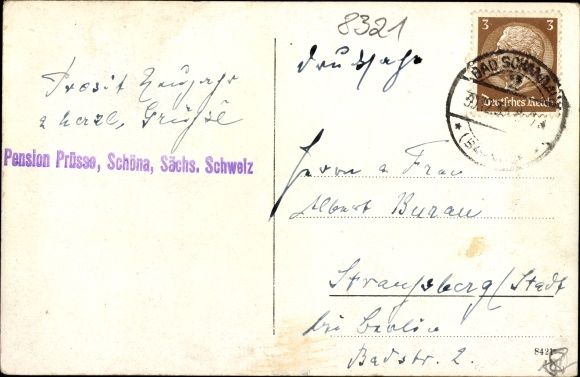 8321
Drucksache
3
3
Deutsches Reich
BAD SCHANDAU
Prosit Neujahr
u herzl. Grüße
Pension Prüsse, Schöna, Sächs. Schweiz
Herrn u Frau
Albert Burau
Strausberg/Stadt
bei Berlin
Badstr. 2.
8421